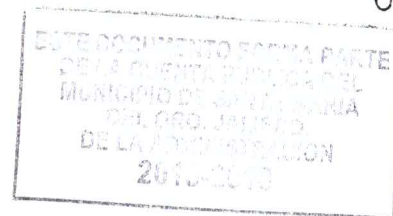 ESTE DOCUMENTO FORMA PARTE
DE LA CUENTA PUBLICA DEL
MUNICIPIO DE SANTA MARIA
DEL ORO, JALISCO
DE LA ADMINISTRACION